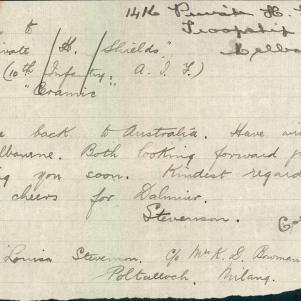 14K Private H.
to Troopship
Private / H. / Shields" Melbo
(10th Infantry, A. I. F.)
"Ceramic
e back to Australia. Have wi
lbourne. Both looking forward
g you soon. Kindest regard
cheers for Dalmier.
Stevenson.
Louisa Stevenson. C/o Mrs K. S. Bowman
Poltalloch, Milang.